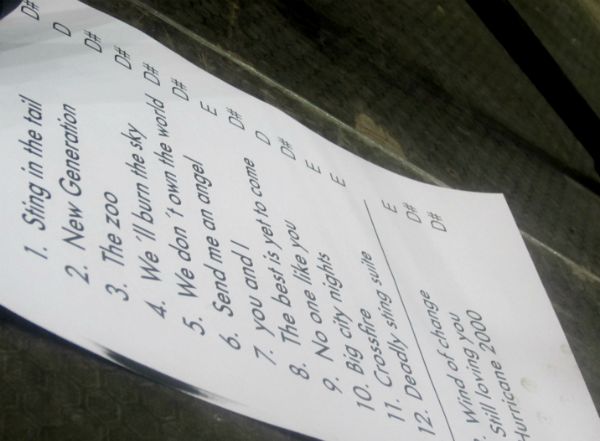 1. Sting in the tail D#
2. New Generation D
3. The zoo D#
4. We ´ll burn the sky D#
5. We don ´t own the world D#
6. Send me an angel D#
7. you and I E
8. The best is yet to come D#
9. No one like you D
10. Big city nights D#
11. Crossfire E
12. Deadly sting suite E
Wind of change E
Still loving you D#
Hurricane 2000 D#